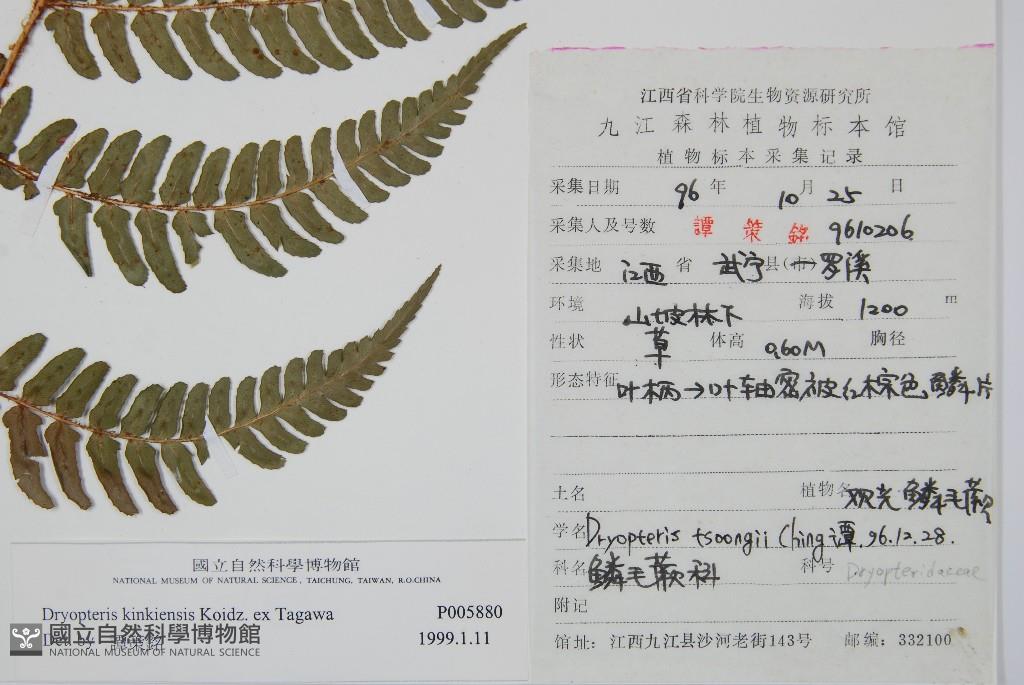 江西省科学院生物资源研究所
九江森林植物标本馆
植物标本采集记录
采集日期 96 年 10 月 25 日
采集人及号数 譚策銘 9610206
采集地 江西 省 武宁 县(市) 罗溪
环境 山坡林下 海拔 1200 m
性状 草 体高 0.60M 胸径
形态特征 叶柄→叶轴密被红棕色鳞片
土名 植物名 观光鳞毛蕨
学名 Dryopteris tsoongii Ching 譚.96.12.28.
科名 鳞毛蕨科 科号 Dryopteridaceae
附记
馆址：江西九江县沙河老街143号 邮编：332100
國立自然科學博物館
NATIONAL MUSEUM OF NATURAL SCIENCE, TAICHUNG, TAIWAN, R.O.CHINA
Dryopteris kinkiensis Koidz. ex Tagawa P005880
Det. by 譚策銘 1999.1.11
國立自然科學博物館
NATIONAL MUSEUM OF NATURAL SCIENCE